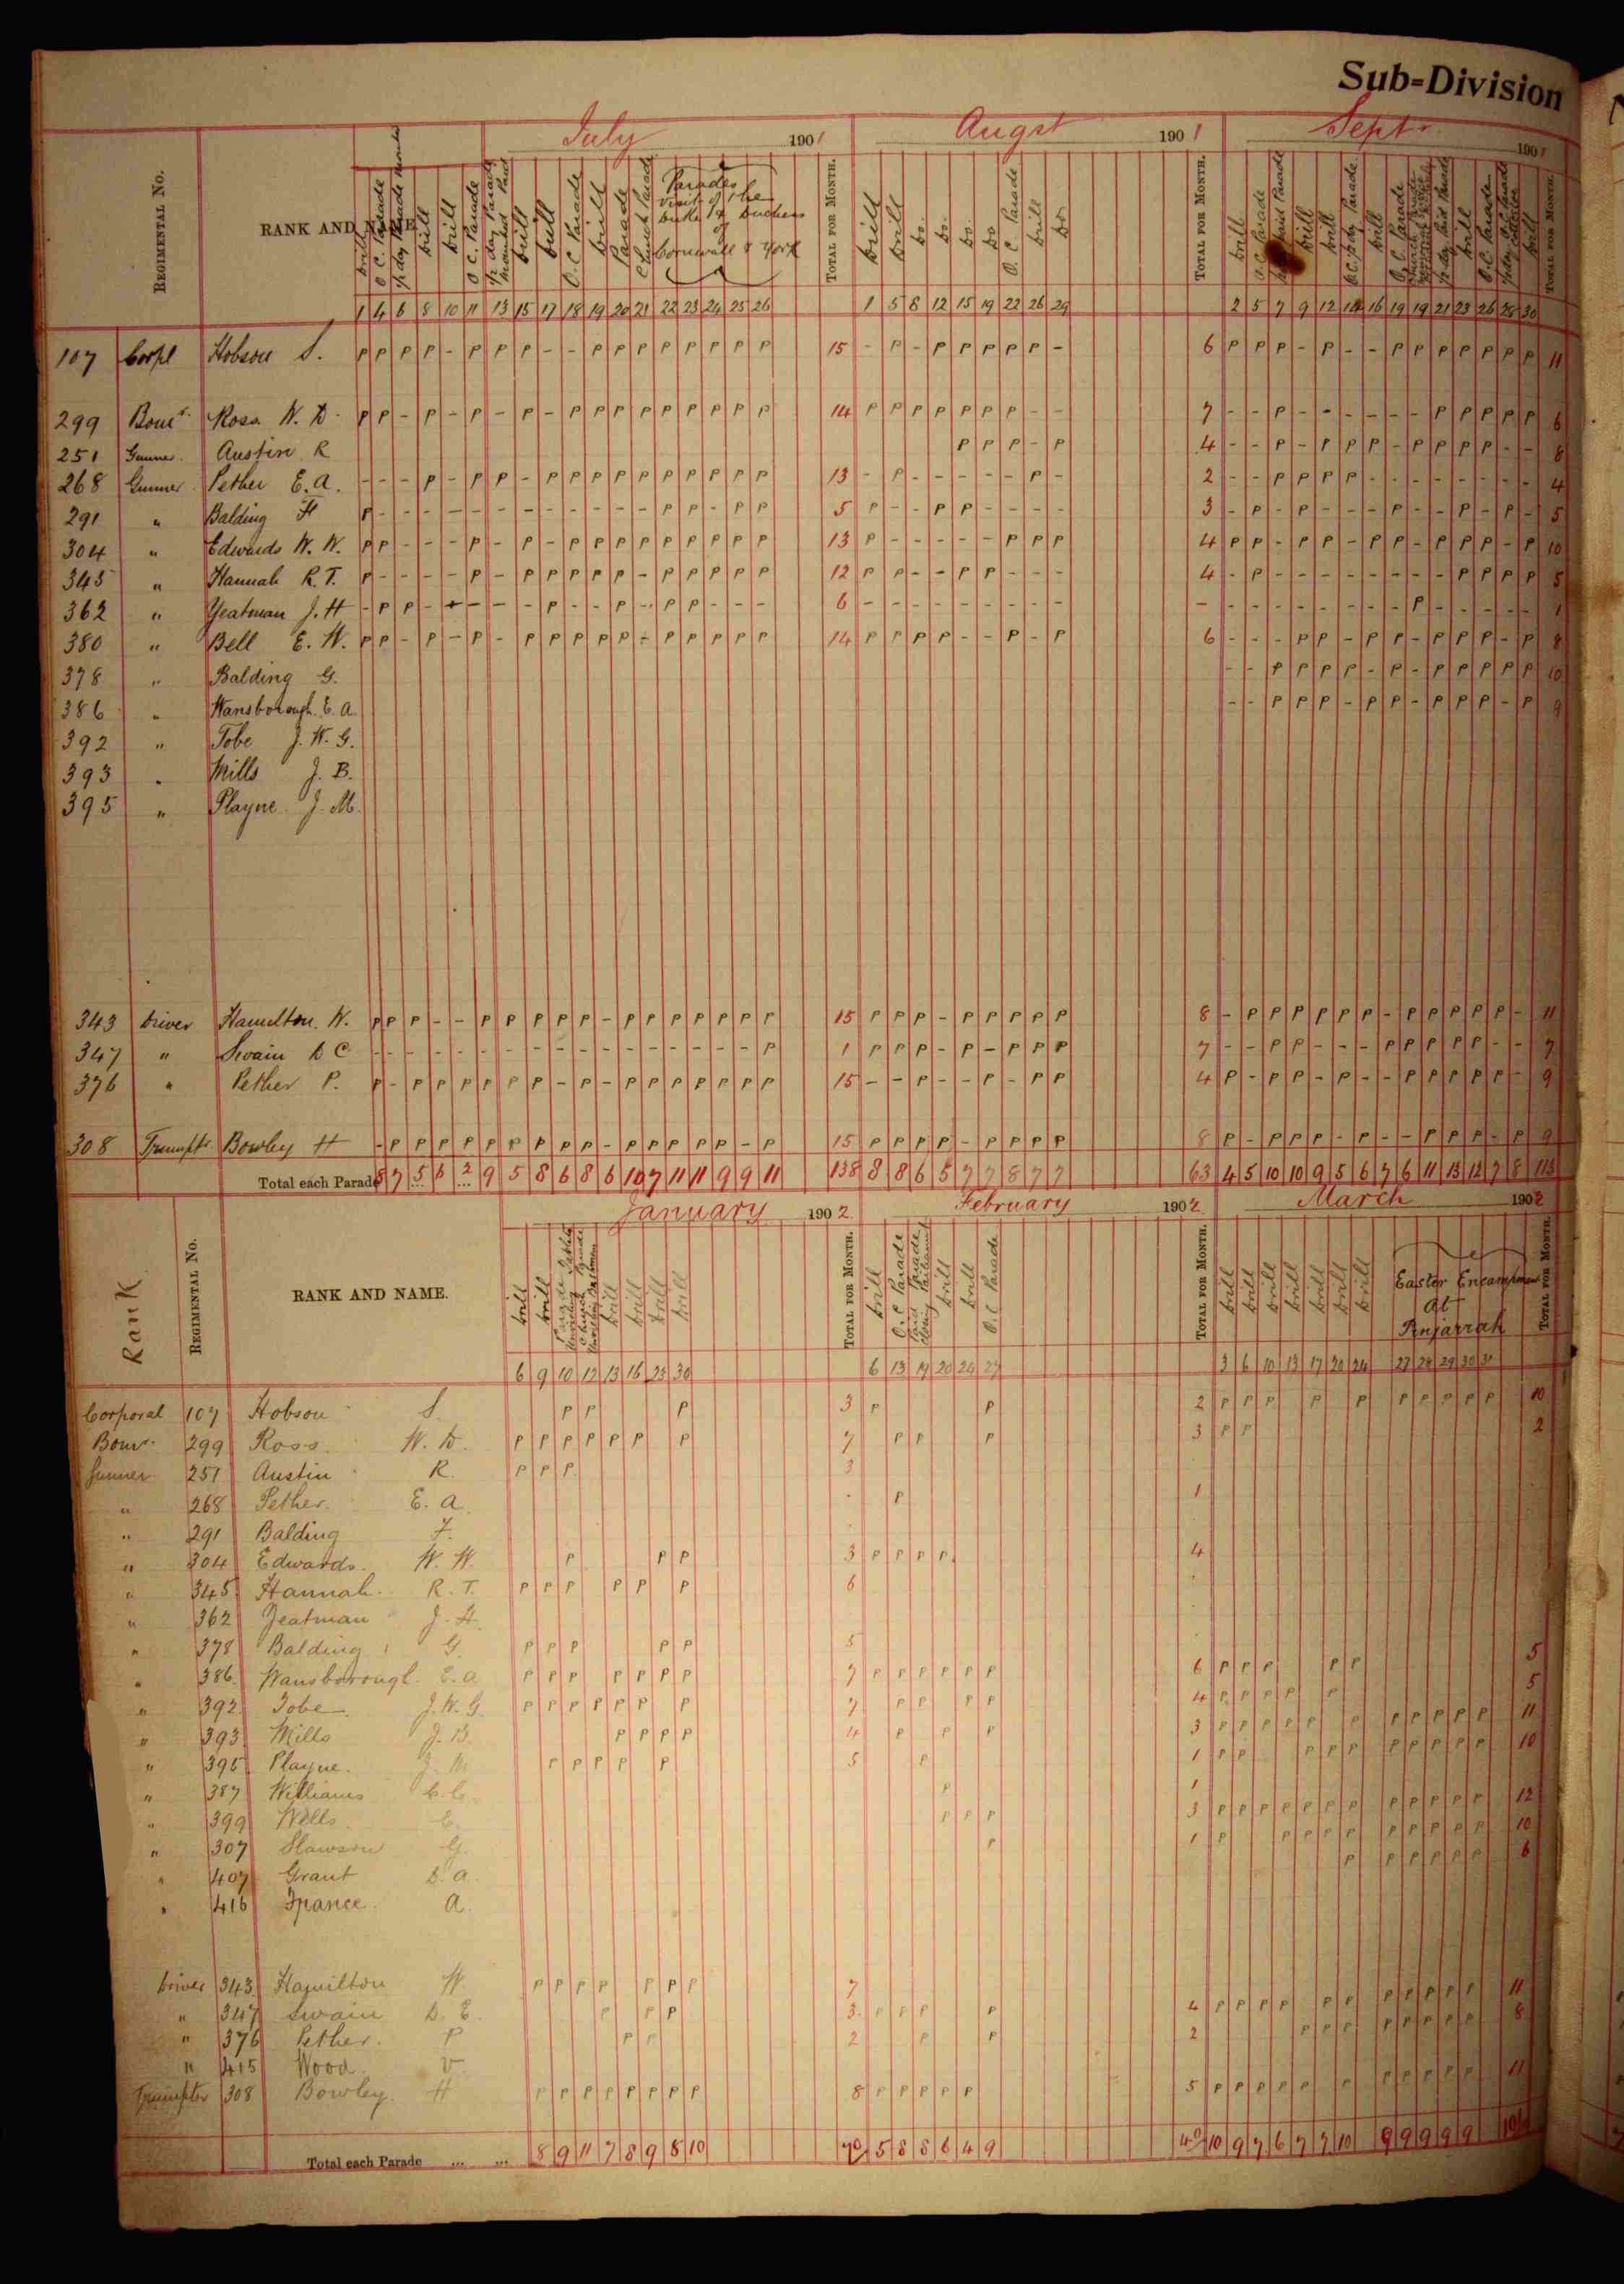 Sub=Division
July 1901 Augst 1901 Sept. 1901
REGIMENTAL No. RANK AND NAME. TOTAL FOR MONTH. TOTAL FOR MONTH. TOTAL FOR MONTH.
Drill O C. Parade ½ day Parade Drill Drill O C. Parade ½ day Parade Mounted Paid Drill Drill O.C Parade Drill Parade Church Parade
Parades
Visit of the
Duke & Duchess
of
Cornwall & York
Drill Drill Do. Do. Do. Do O. C. Parade Drill Do.
Drill O.C Parade Paid Parade Drill Drill O.C. ½ day Parade Drill O.C Parade ½ day Paid Parade Drill O.C Parade Drill
1 4 6 8 10 11 13 15 17 18 19 20 21 22 23 24 25 26 1 5 8 12 15 19 22 26 29 2 5 7 9 12 14 16 19 19 21 23 26 28 30
107 Corpl Hobson S. P P P P - P P P - - P P P P P P P P 15 - P - P P P P P - 6 P P P - P - - P P P P P P P 11
299 Bomr. Ross. W. D. P P - P - P - P - P P P P P P P P P 14 P P P P P P P - - 7 - - P - - - - - - P P P P P 6
251 Gunner. Austin R P P P - P 4 - - P - P P P - P P P P - - 8
268 Gunner Pether E. A. - - - P - P P - P P P P P P P P P P 13 - P - - - - - P - 2 - - P P P P - - - - - - - - 4
291 " Balding F P - - - - - - - - - - - - P P - P P 5 P - - P P - - - - 3 - P - P - - - P - - P - P - 5
304 " Edwards W. W. P P - - - P - P - P P P P P P P P P 13 P - - - - - P P P 4 P P - P P - P P - P P P - P 10
345 " Hannah R. T. P - - - - P - P P P P P - P P P P P 12 P P - - P P - - - 4 - P - - - - - - - - P P P P 5
362 " Yeatman J. H - P P - - - - - P - - P - P P - - - 6 - - - - - - - - - - - - - - - - - - - P - - - - - 1
380 " Bell E. W. P P - P - P - P P P P P - P P P P P 14 P P P P - - P - P 6 - - - P P - P P - P P P - P 8
378 " Balding G. - - P P P P - P - P P P P P 10
386 " Wansborough E. A - - P P P - P P - P P P - P 9
392 " Tobe J. W. G.
393 " Mills J. B.
395 " Playne J. M.
343 Driver Hamilton. W. P P P - - P P P P P - P P P P P P P 15 P P P - P P P P P 8 - P P P P P P - P P P P P - 11
347 " Swain D C - - - - - - - - - - - - - - - - - P 1 P P P - P - P P P 7 - - P P - - - P P P P P - - 7
376 " Pether P. P - P P P P P P - P - P P P P P P P 15 - - P - - P - P P 4 P - P P - P - - P P P P P - 9
308 Trumptr Bowley H - P P P P P P P P P - P P P P P - P 15 P P P P - P P P P 8 P - P P P - P - - P P P - P 9
Total each Parade 8 7 5 6 2 9 5 8 6 8 6 10 7 11 11 9 9 11 138 8 8 6 5 7 7 8 7 7 63 4 5 10 10 9 5 6 7 6 11 13 12 7 8 113
January 1902 February 1902 March 1902
Rank REGIMENTAL No. RANK AND NAME. TOTAL FOR MONTH. TOTAL FOR MONTH. TOTAL FOR MONTH.
Drill Drill Church Parade Drill Drill Drill Drill
Drill O.C Parade Paid Parade Drill Drill O.C Parade
Drill Drill Drill Drill Drill Drill Drill
Easter Encampment
at
Pinjarrah
6 9 10 12 13 16 23 30 6 13 19 20 24 27 3 6 10 13 17 20 24 27 28 29 30 31
Corporal 107 Hobson S. P P P 3 P P 2 P P P P P P P P P P 10
Bomr. 299 Ross. W. D. P P P P P P P 7 P P P 3 P P 2
Gunner 251 Austin R. P P P 3
" 268 Pether. E. A P 1
" 291 Balding F.
" 304 Edwards. W. W. P P P 3 P P P P 4
" 345 Hannah. R. T. P P P P P P 6
" 362 Yeatman J. H.
" 378 Balding G. P P P P P 5
" 386. Wansborough E. A P P P P P P P 7 P P P P P P 6 P P P P P 5
" 392 Tobe. J. W. G. P P P P P P P 7 P P P P 4 P P P P P 5
" 393 Mills J. B. P P P P 4 P P P 3 P P P P P P P P P P P 11
" 395 Playne. J. M P P P P P 5 P 1 P P P P P P P P P P 10
" 387 Williams C. C. P 1
" 399 Wells C. P P P 3 P P P P P P P P P P P P 12
" 307 Slawson G. P 1 P P P P P P P P P P 10
" 407 Grant D. A. P P P P P P 6
" 416 France. A.
Driver 343. Hamilton W P P P P P P P 7
" 347 Swain D. E. P P P 3 P P P P 4 P P P P P P P P P P P 11
" 376 Pether. P P P 2 P P 2 P P P P P P P P 8
" 415 Wood. V
Trumpter 308 Bowley. H P P P P P P P P 8 P P P P P 5 P P P P P P P P P P P 11
Total each Parade ... ... 8 9 11 7 8 9 8 10 70 5 8 8 6 4 9 40 10 9 7 6 7 7 10 9 9 9 9 9